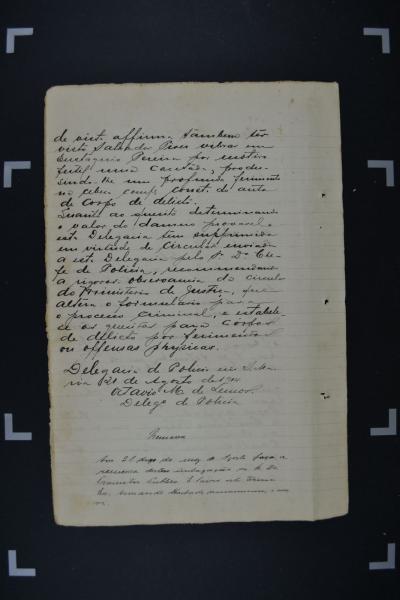 de vista affirma tambem ter
visto Salvador Pires vibrar em
Eustaquio Pereira por motivo
futil uma cacetada, produ-
sindo-lhe um profundo ferimento
na cabeça como consta do auto
de corpo de delicto.
Quanto ao quesito determinando
o valor do damno provavel,
esta Delegacia tem supprimido
em virtude de circular enviada
a esta Delegacia pelo Sr. Dr. Che-
fe de Policia, recommendando
a rigorosa observancia da circular
do Ministerio da Justiça, que
altera o formulario para
o processo criminal, e estabele-
ce os quesitos para corpos
de delicto por ferimentos
ou offensas physicas.
Delegacia de Policia em
21 de Agosto de 1914
Octavio M. de Lemos
Delegº de Policia
Remessa
Aos 21 dias do mez de Agosto faço a
remessa destas
Promotor Publico